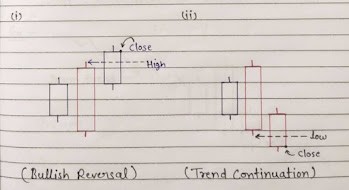 (i)
(ii)
Close
High
low
close
(Bullish Reversal)
(Trend Continuation)